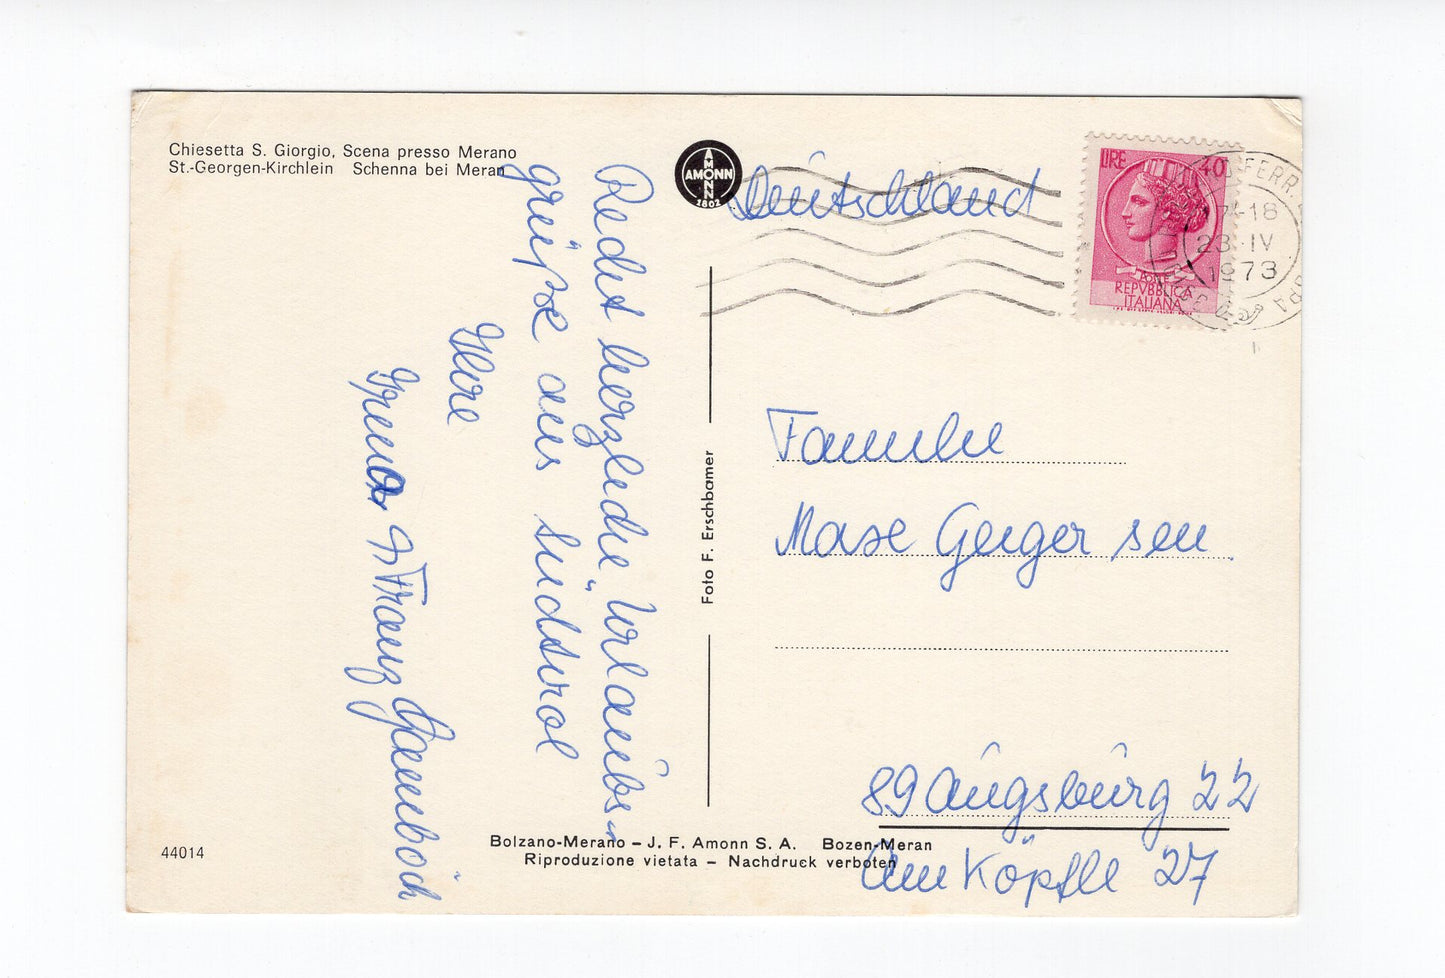 Chiesetta S. Giorgio, Scena presso Merano
St.-Georgen-Kirchlein Schenna bei Meran
AMONN
AMONN
1802
Deutschland
LIRE 40
POSTE
REPVBBLICA
ITALIANA
FERR.
17-18
23·IV
1973
Recht herzliche Urlaubs-
grüße aus Südtirol
Ihre
Irma u Franz
Foto F. Erschbamer
Familie
Max Geiger sen.
89 Augsburg 22
Am Köpfle 27
44014
Bolzano-Merano – J. F. Amonn S. A. Bozen-Meran
Riproduzione vietata – Nachdruck verboten